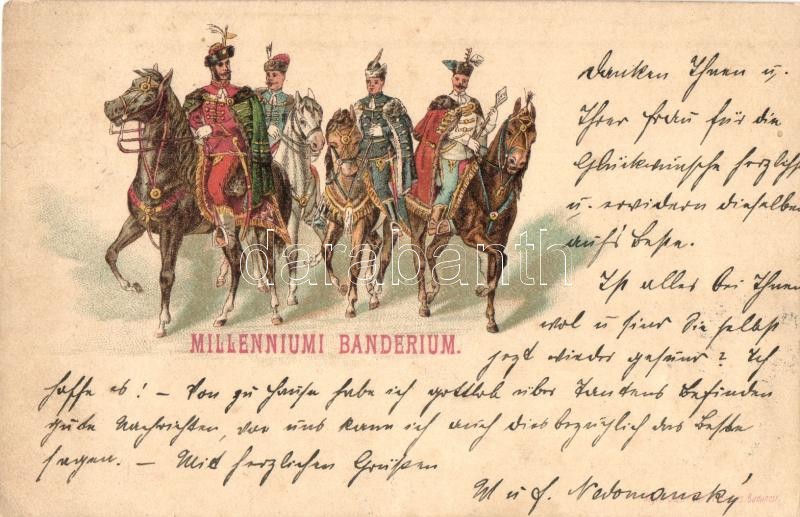 Danken Ihnen u.
Ihrer Frau für die
Glückwünsche herzlichst
u. erwidern dieselben
auf's Beste.
Ist alles bei Ihnen
wol u sind Sie selbst
jezt wieder gesund? Ich
hoffe es! – Von zu Hause habe ich gottlob über Tantens Befinden
gute Nachrichten, von uns kann ich auch diesbezüglich das Beste
sagen. – Mit herzlichen Grüßen
M u J. Nedomanský
MILLENNIUMI BANDERIUM.
darabanth